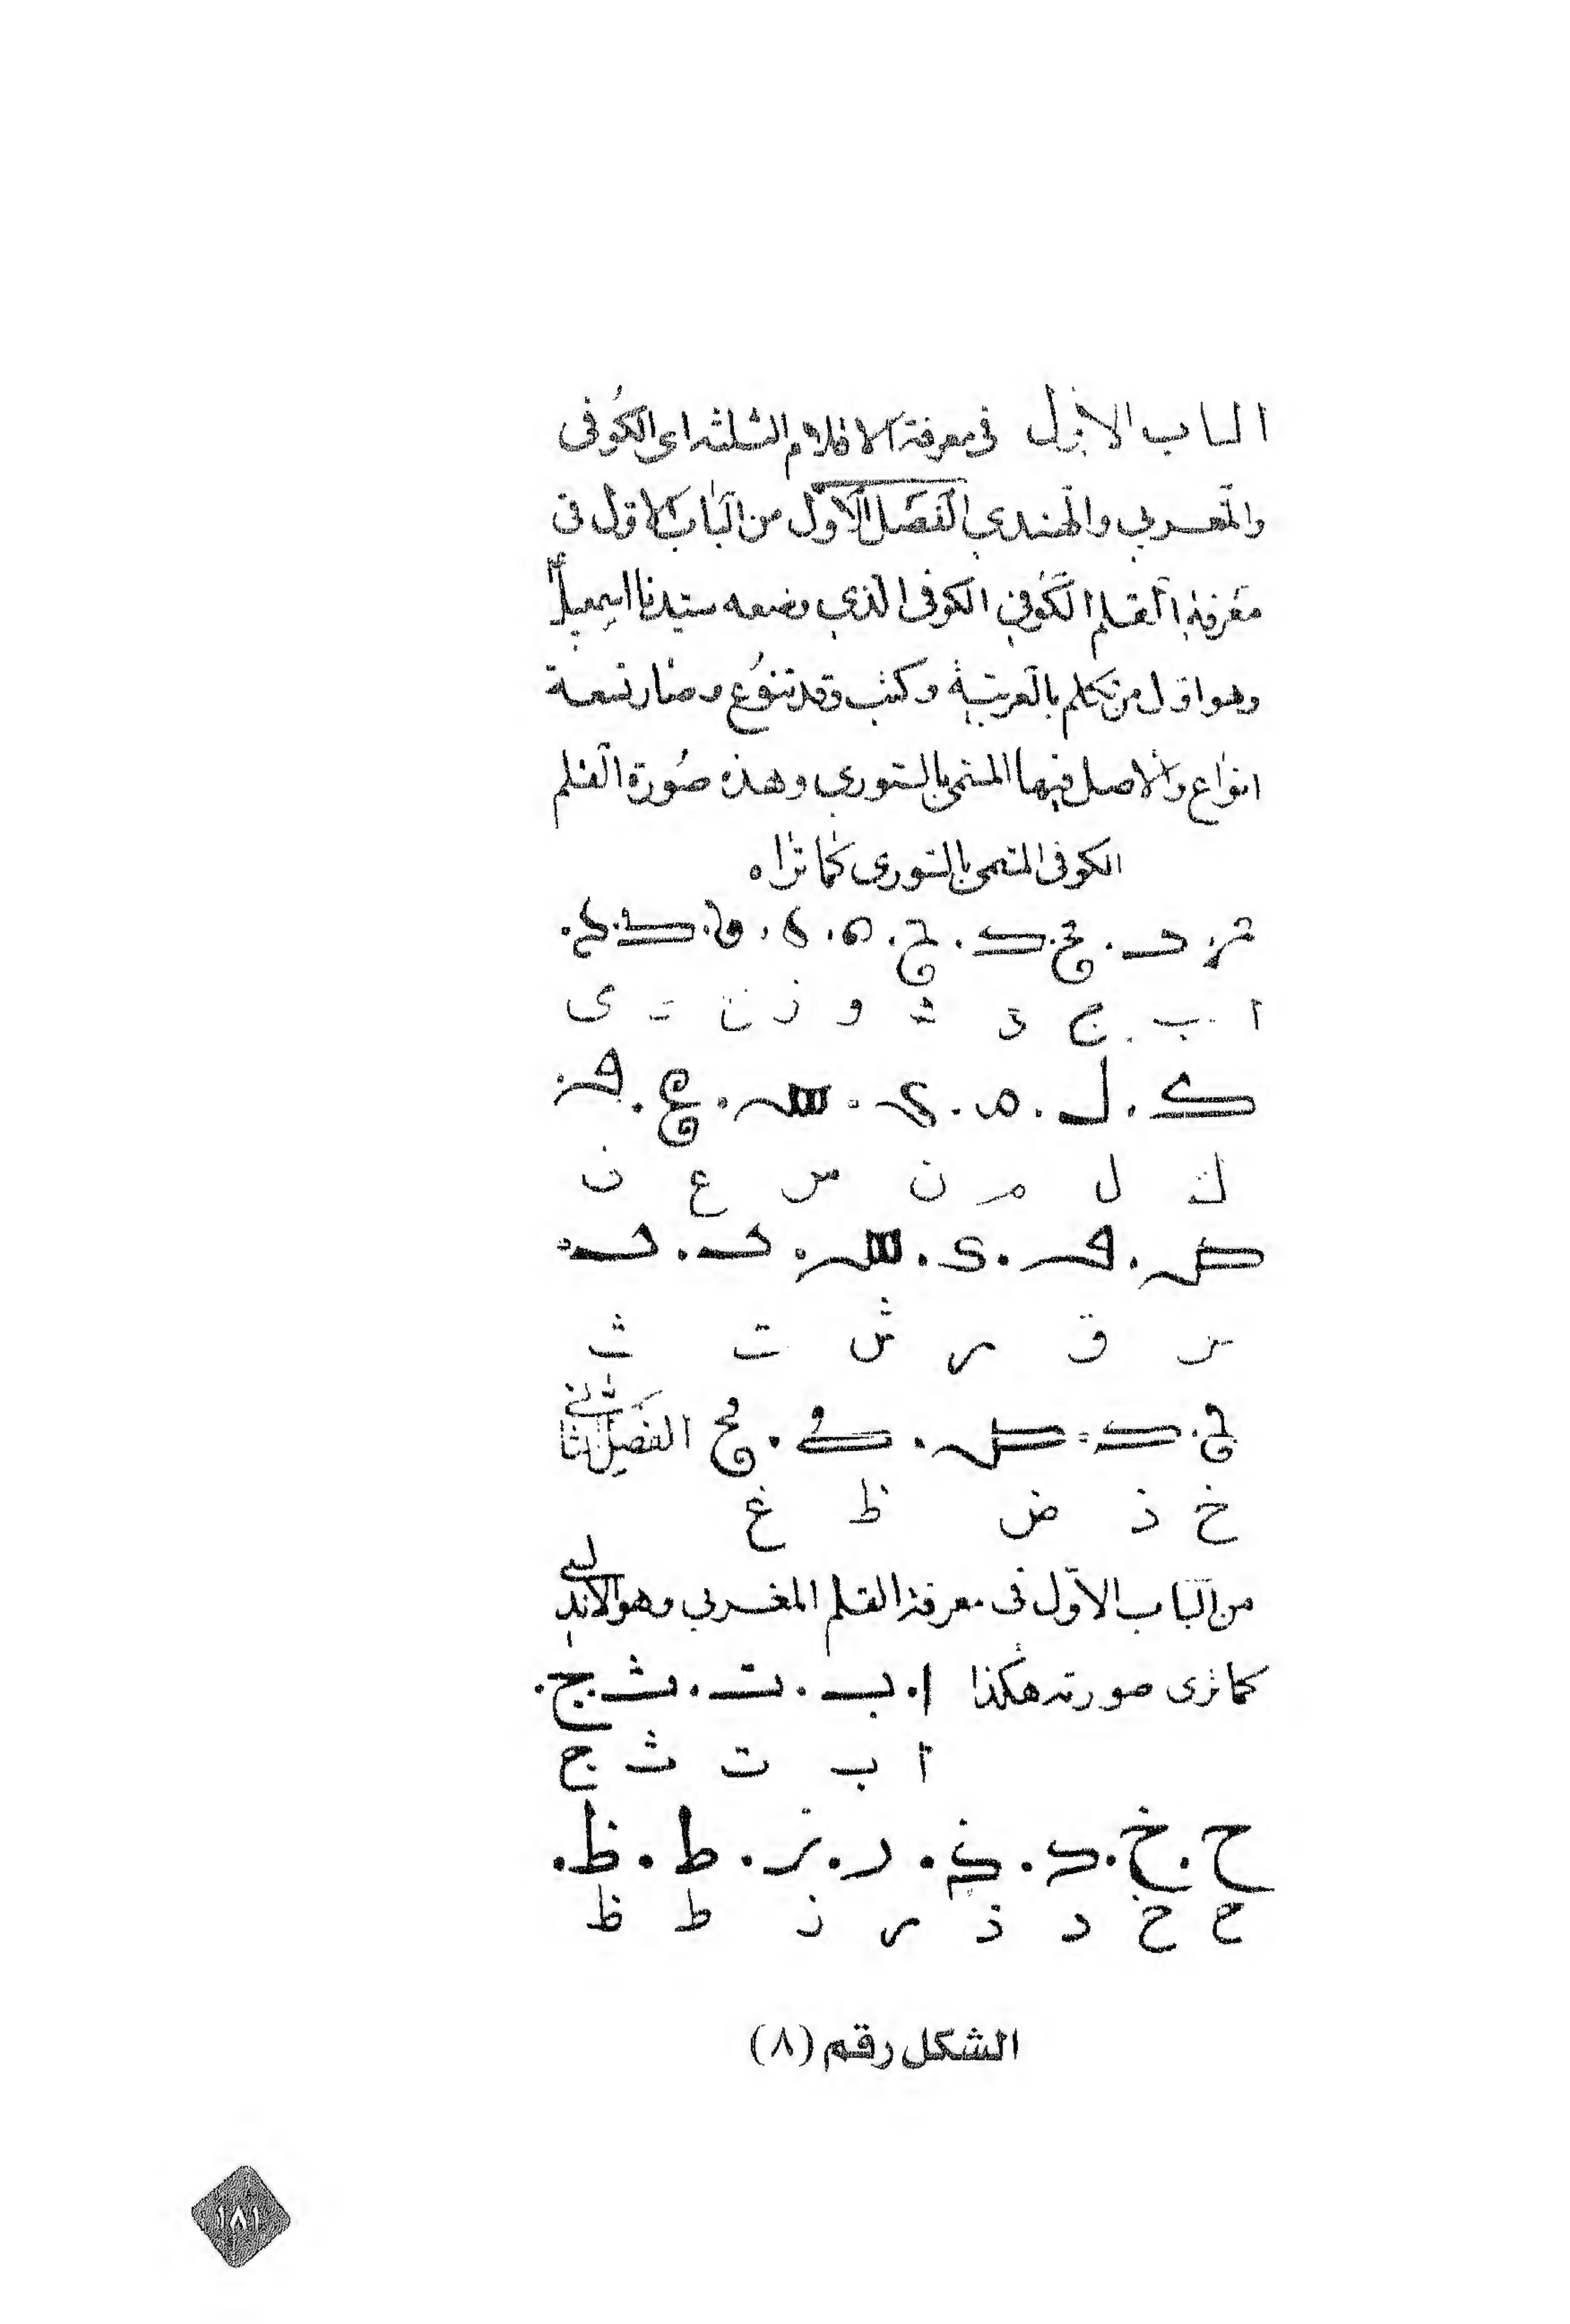 الباب الاول فى معرفة الاقلام الثلثه اى الكوفى
والمغربي والهندي الفصل الاول من الباب الاول فى
معرفة القلم الكوفي الكوفى الذي وضعه سيدنا اسمعيل
وهو اول من تكلم بالعربية وكتب وقد تنوع وصار تسعة
انواع والاصل فيها المسمى بالسوري وهذه صورة القلم
الكوفى المسمى بالسورى كما تراه
ا ب ج و ز ى
ك ل م ن س ع ف
ق ر ش ت ث
الفصل الثاني
خ ذ ض ظ غ
من الباب الاول فى معرفة القلم المغربي وهو الاندلسي
كما ترى صورته هكذا ا . ب . ت . ث . ج .
ا ب ت ث ج
ح . خ . د . ذ . ر . ز . ط . ظ .
ح خ د ذ ر ز ط ظ
الشكل رقم (٨)
١٨١